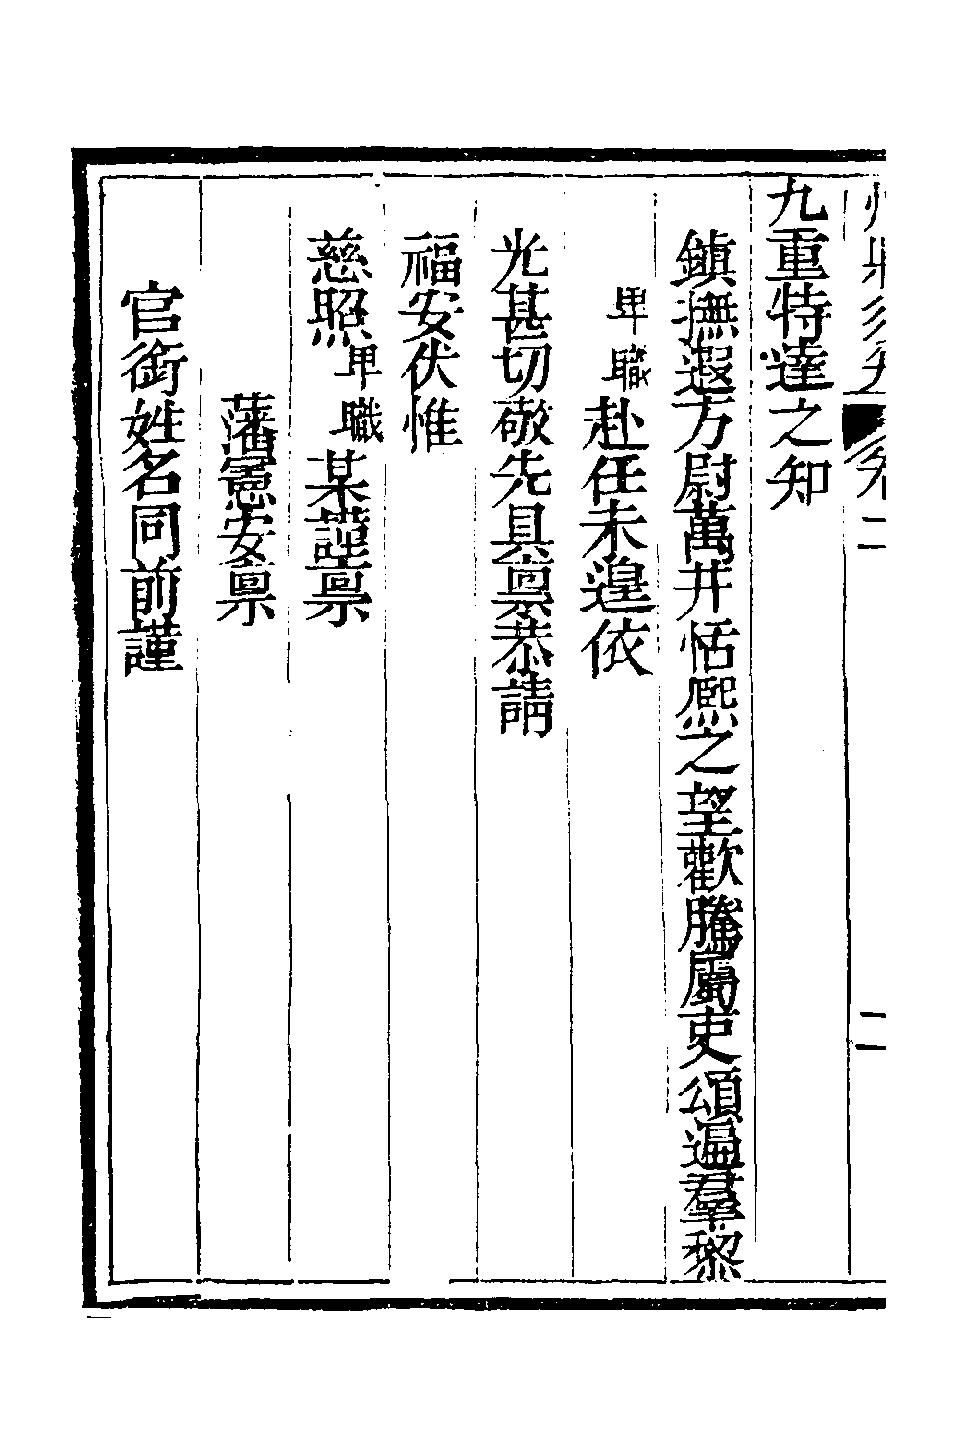 九重特達之知
鎮撫遐方尉萬井恬熙之望歡騰屬吏頌遍羣黎
卑職赴任未遑依
光甚切敬先具禀恭請
福安伏惟
慈照卑職某謹禀
藩憲安禀
官銜姓名同前謹
二
二